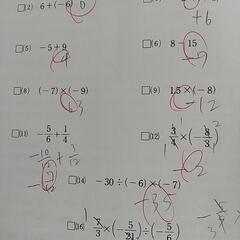 □(2) 6+(-6) 0
+6
□(5) -5+9
4
□(6) 8-15
-7
□(8) (-7)×(-9)
63
□(9) 1.5×(-8)
-12
□(11) -5/6+1/4
-10/12+3/12
-7/12
□(12) 3/4×(-8/3)
-2
□(14) -30÷(-6)×(-7)
-35
□(16) 5/3×(-5/21)÷(-5/6)